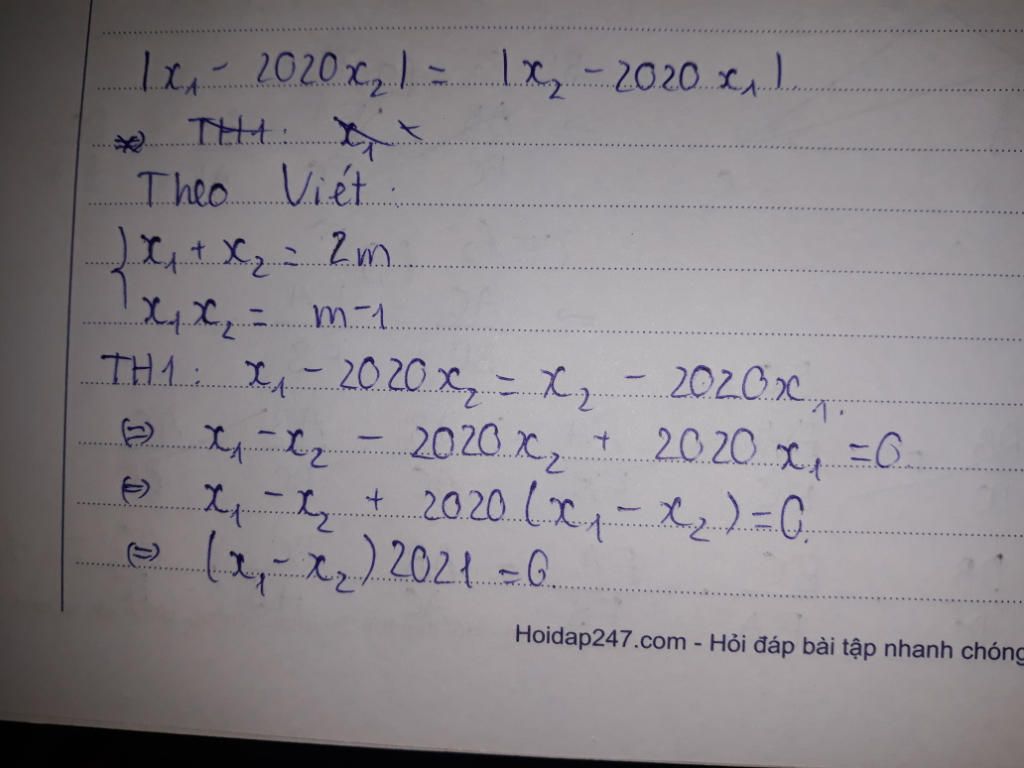 |x₁ - 2020x₂| = |x₂ - 2020x₁|.
=> TH1: x₁
Theo Viét:
{ x₁ + x₂ = 2m
x₁x₂ = m-1
TH1: x₁ - 2020x₂ = x₂ - 2020x₁.
<=> x₁ - x₂ - 2020x₂ + 2020x₁ = 0.
<=> x₁ - x₂ + 2020(x₁ - x₂) = 0.
<=> (x₁ - x₂)2021 = 0.
Hoidap247.com - Hỏi đáp bài tập nhanh chóng